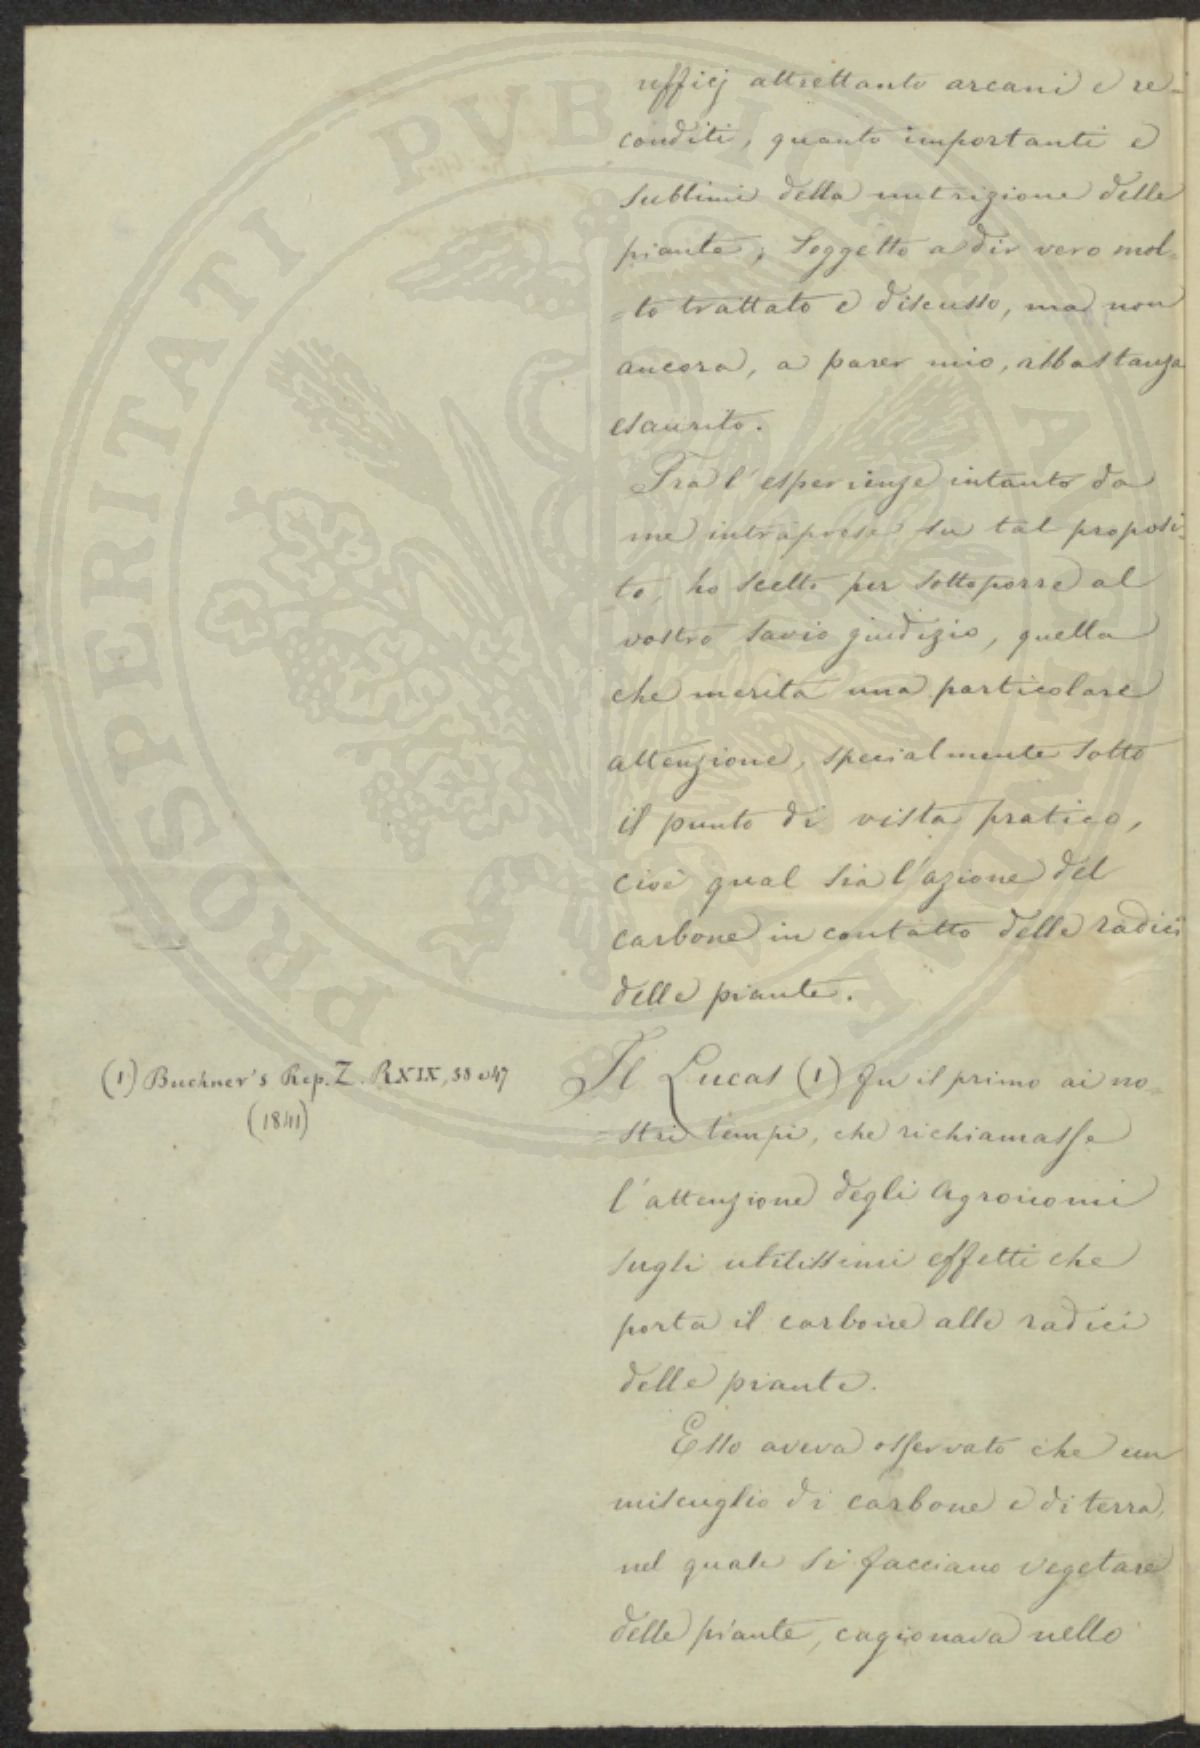 ufficj altrettanto arcani e re-
conditi, quanto importanti e
sublimi della nutrizione delle
piante; soggetto a dir vero mol-
=to trattato e discusso, ma non
ancora, a parer mio, abbastanza
esaurito.
Tra l'esperienze intanto da
me intraprese su tal proposi-
to, ho scelto per sottoporre al
vostro savio giudizio, quella
che merita una particolare
attenzione, specialmente sotto
il punto di vista pratico,
cioè qual sia l'azione del
carbone in contatto delle radici
delle piante.
(1) Buchner's Rep. Z. RXIX, 38 e 47
(1841)
Il Lucas (1) fu il primo ai no-
=stri tempi, che richiamasse
l'attenzione degli Agronomi
sugli utilissimi effetti che
porta il carbone alle radici
delle piante.
Esso aveva osservato che un
miscuglio di carbone e di terra,
nel quale si facciano vegetare
delle piante, cagionava nello
PROSPERITATI PVBLICAE AVGENDAE